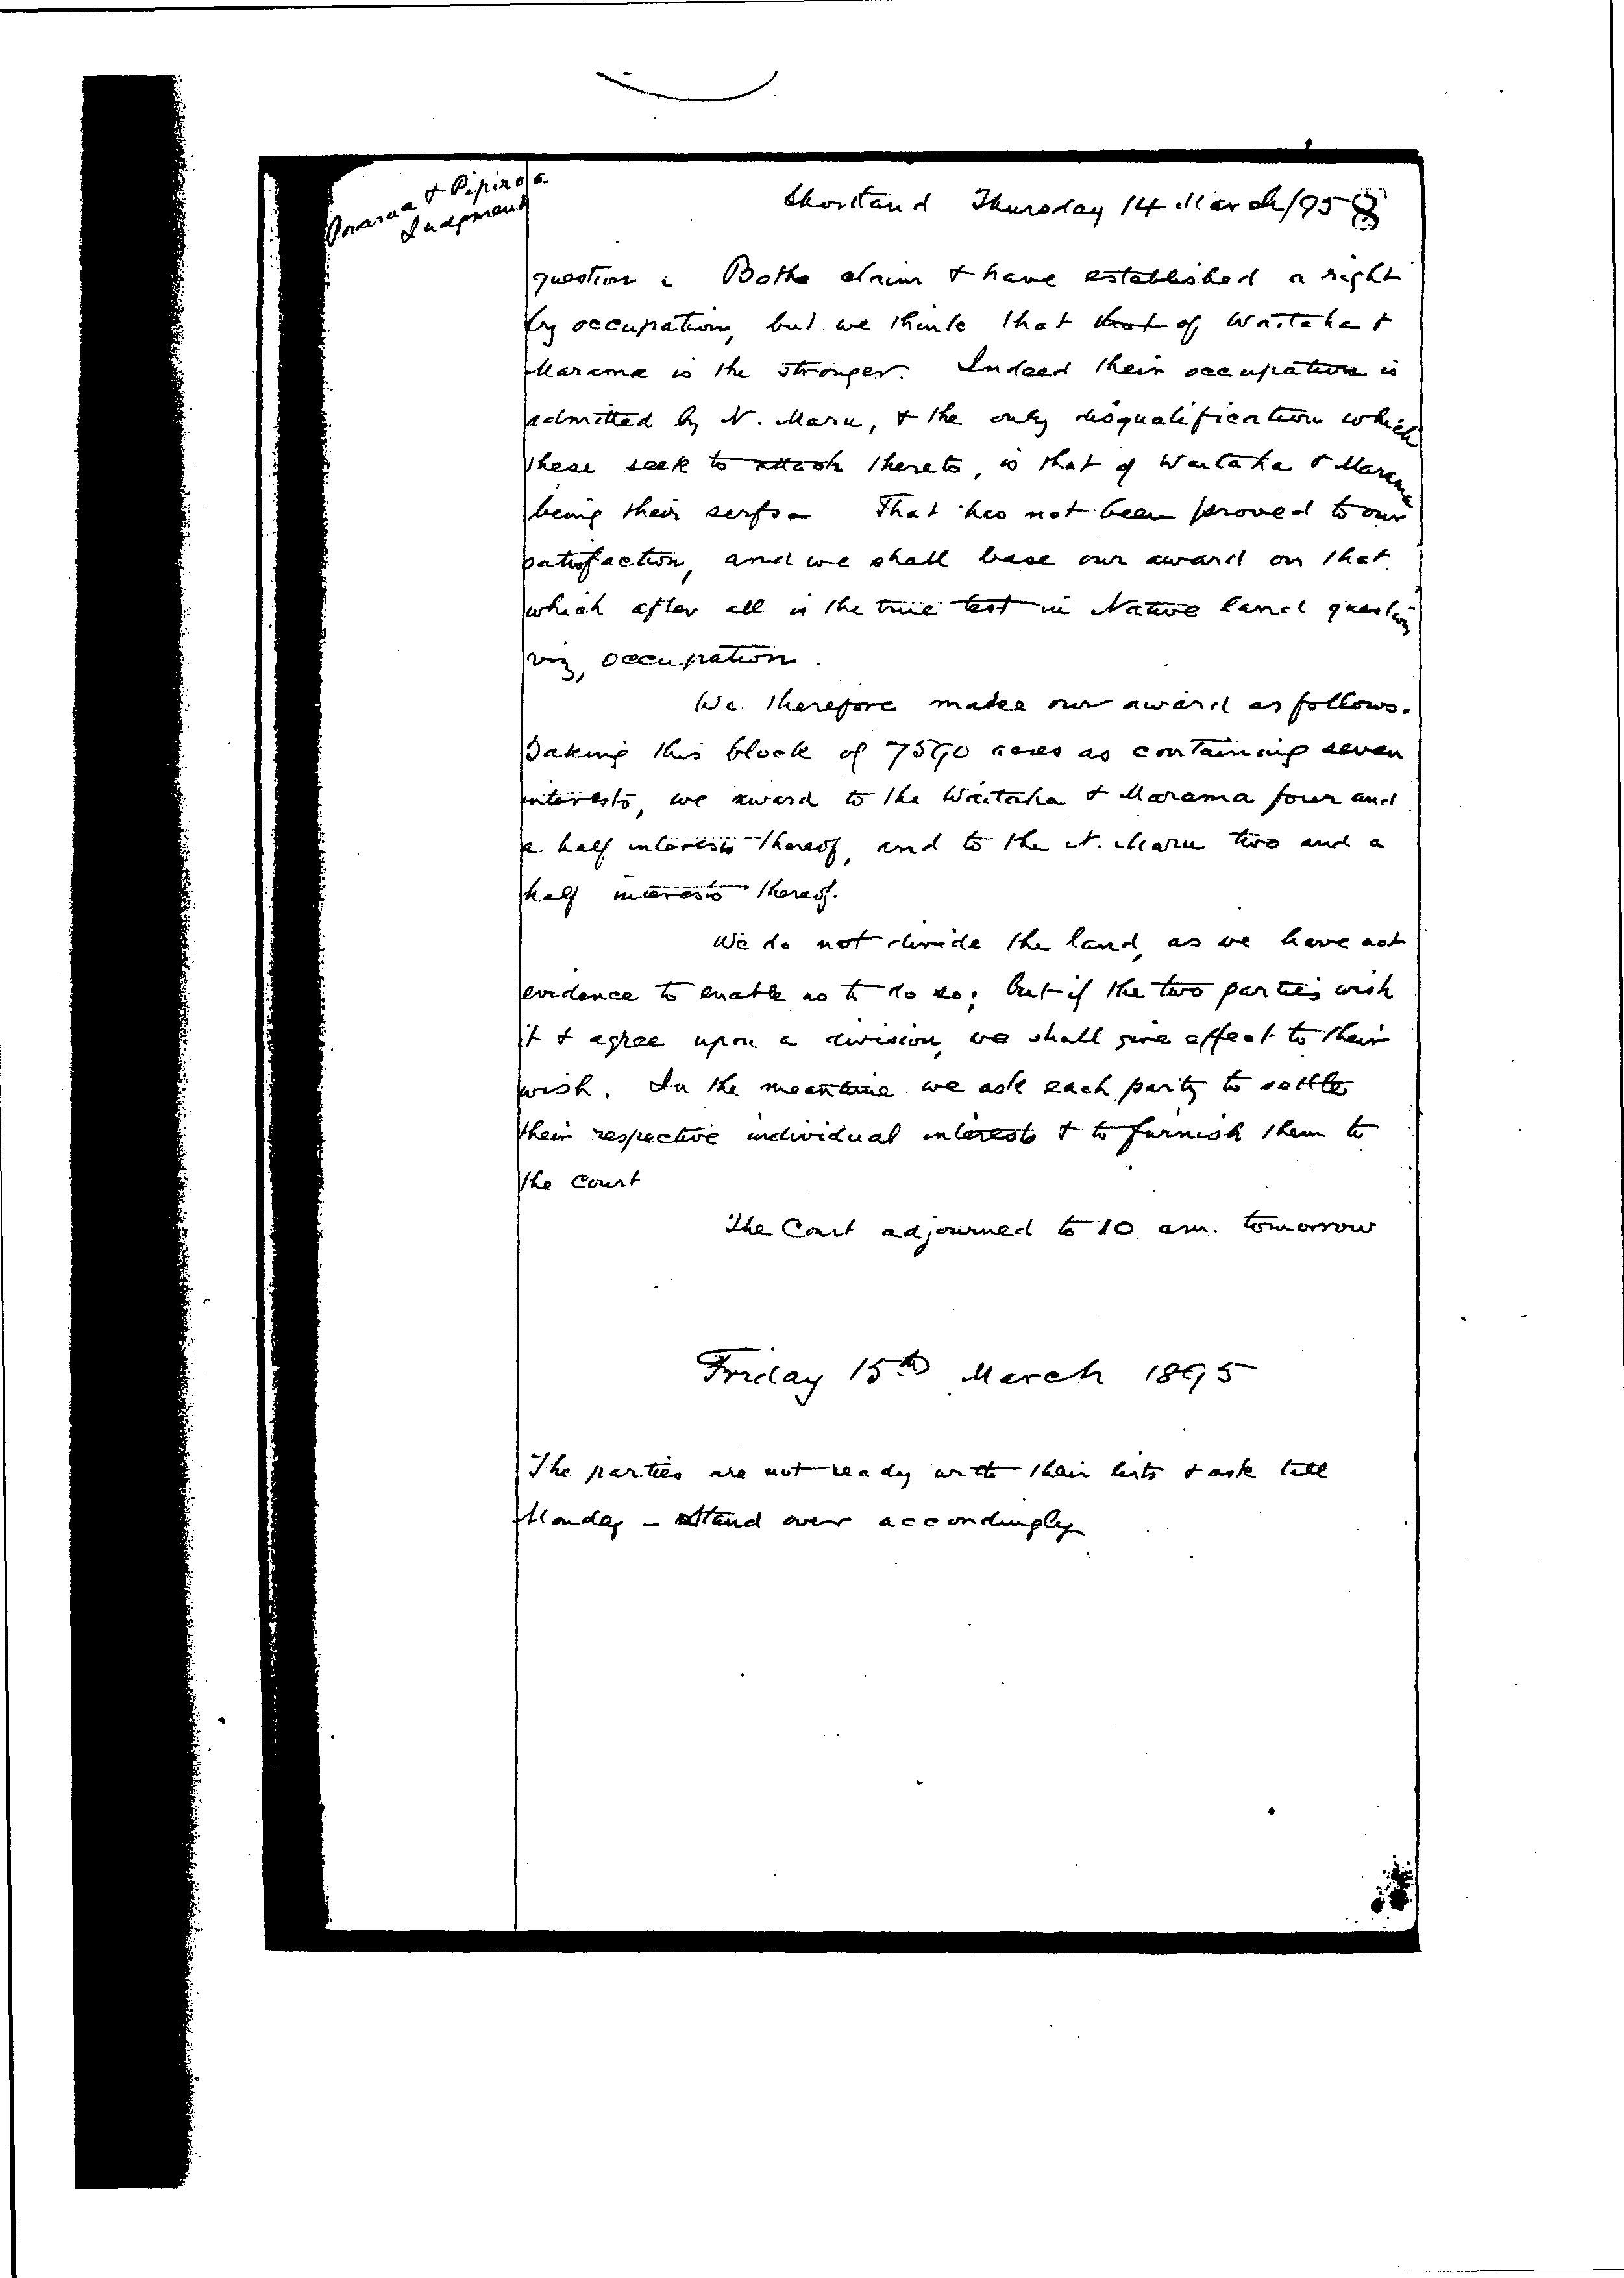 & Pipiroa
Judgment
Shortland Thursday 14 March/95 8
question: Both claim & have established a right
by occupation, but we think that that of Waitaha &
Marama is the stronger. Indeed their occupation is
admitted by N. Maru, & the only disqualification which
these seek to attach thereto, is that of Waitaha & Marama
being their serfs - That has not been proved to our
satisfaction, and we shall base our award on that
which after all is the true test in Native land question
viz, occupation.
We therefore make our award as follows.
Taking this block of 7590 acres as containing seven
interests, we award to the Waitaha & Marama four and
a half interests thereof, and to the N. Maru two and a
half interests thereof.
We do not divide the land, as we have not
evidence to enable us to do so; but if the two parties wish
it & agree upon a division, we shall give effect to their
wish. In the meantime we ask each party to settle
their respective individual interests & to furnish them to
the Court
The Court adjourned to 10 am. tomorrow
Friday 15th March 1895
The parties are not ready with their lists & ask till
Monday - Stand over accordingly